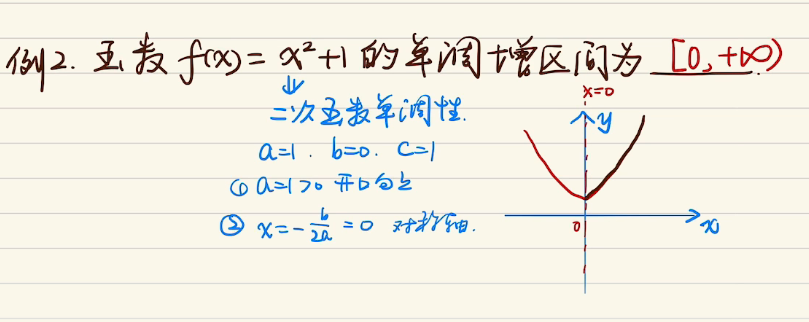 例2. 函数 f(x) = x²+1 的单调增区间为 [0,+∞)
↓
二次函数单调性.
a=1 . b=0. C=1
① a=1>0 开口向上
② x=-b/2a=0 对称轴.
x=0
y
0
x